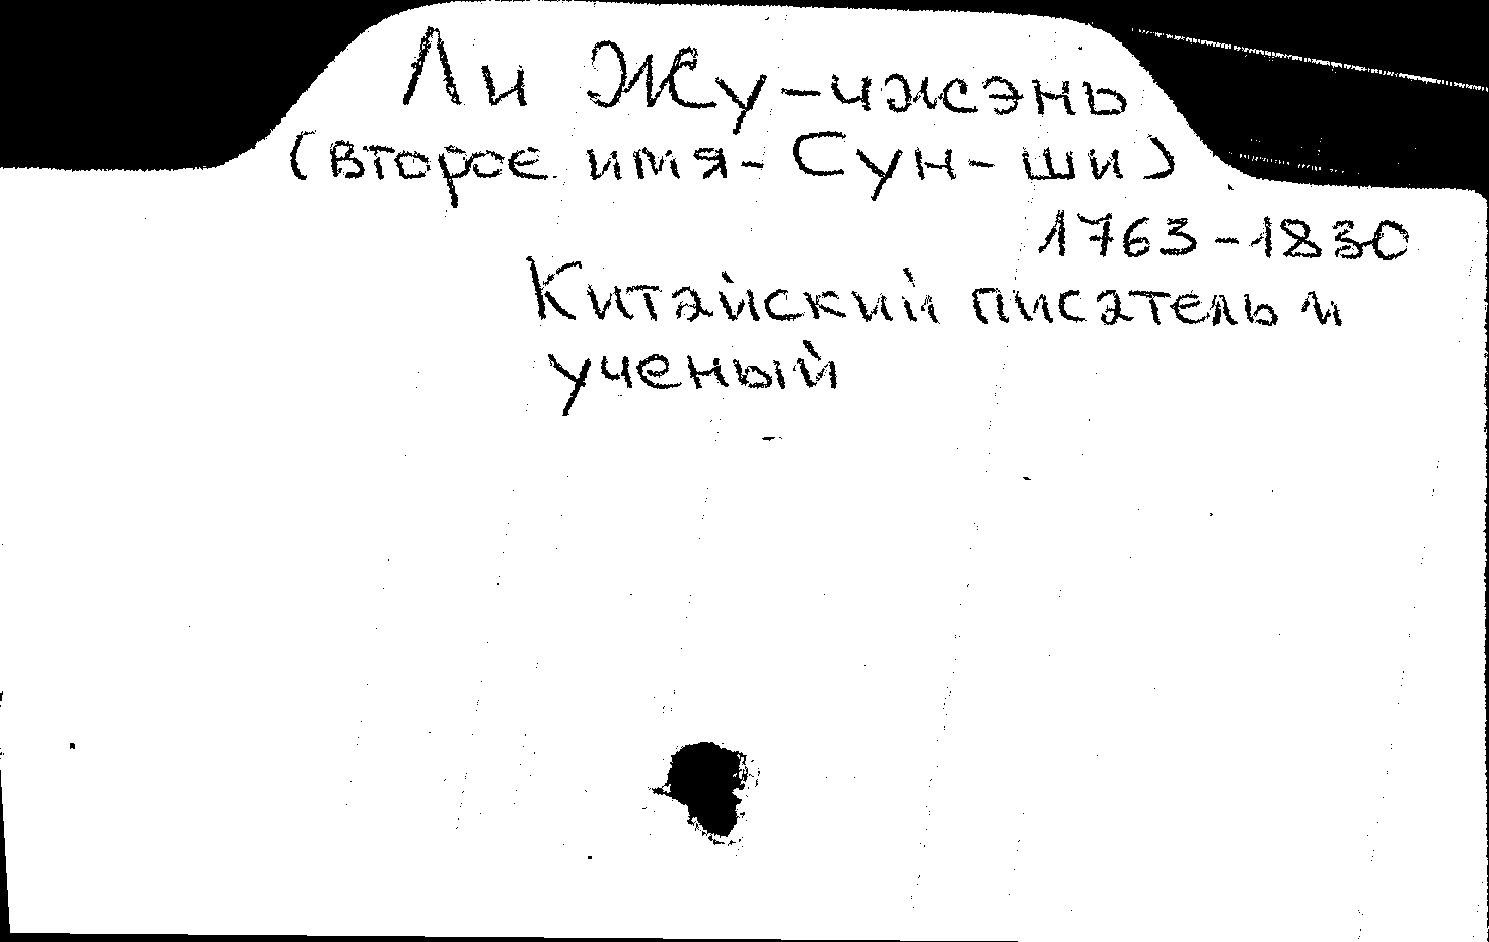 Ли Жу-чжэнь
(второе имя- Сун-ши)
1763-1830
Китайский писатель и
ученый